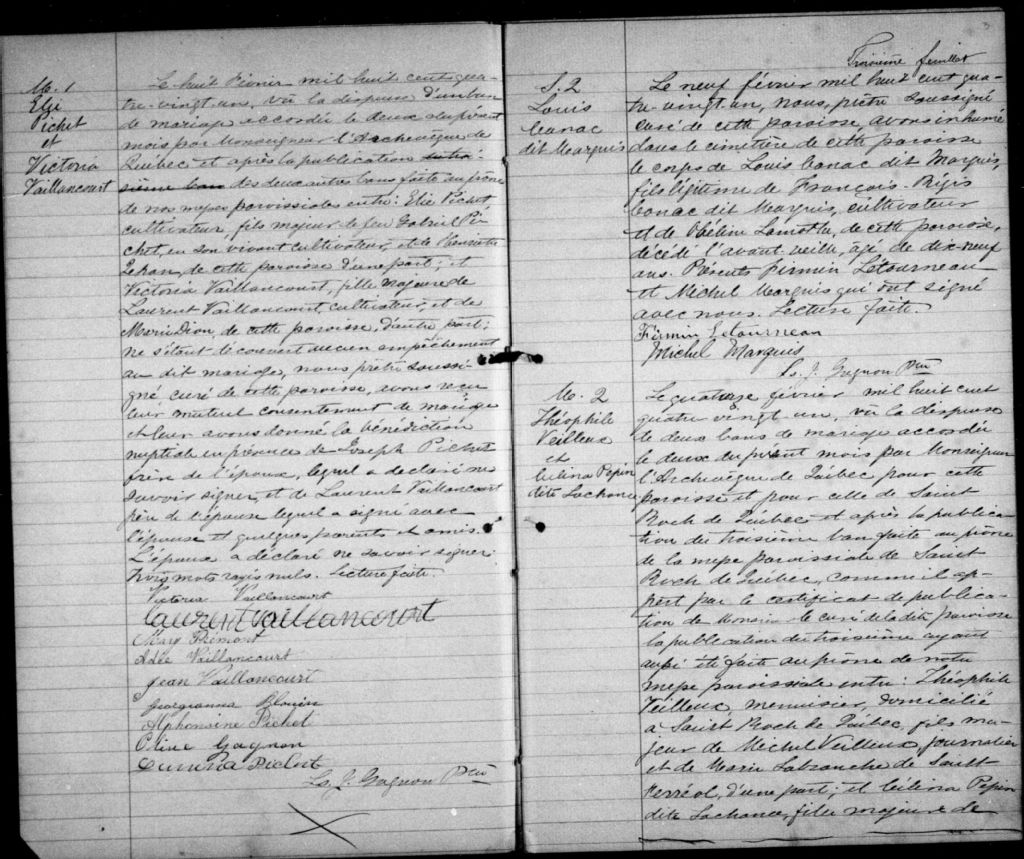 M. 1
Elie
Pichet
et
Victoria
Vaillancourt
Le huit Février mil huit cent qua-
tre-vingt-un, vu la dispense d'un ban
de mariage accordée le deux du présent
mois par Monseigneur l'Archevêque de
Québec et après la publication du troi-
sième ban des deux autres bans faite au prône
de nos messes paroissiales entre: Elie Pichet
cultivateur, fils majeur de feu Gabriel Pi-
chet, en son vivant cultivateur, et de Henriette
de cette paroisse d'une part; et
Victoria Vaillancourt, fille majeure de
Laurent Vaillancourt, cultivateur, et de
Marie Dion, de cette paroisse, d'autre part;
ne s'étant découvert aucun empêchement
au dit mariage, nous prêtre soussi-
gné, curé de cette paroisse, avons reçu
leur mutuel consentement de mariage
et leur avons donné la bénédiction
nuptiale en présence de Joseph Pichet
frère de l'époux, lequel a déclaré ne
savoir signer, et de Laurent Vaillancourt
père de l'épouse lequel a signé avec
l'épouse et quelques parents et amis.
L'époux a déclaré ne savoir signer.
trois mots rayés nuls. Lecture faite.
Victoria Vaillancourt
Laurent Vaillancourt
Mary Premont
Adée Vaillancourt
Jean Vaillancourt
Georgianna Blouin
Alphonsine Pichet
Oline Gagnon
Pichet
Ls. J. Gagnon Ptre
Troisième feuillet
S. 2
Louis
Canac
dit Marquis
Le neuf février mil huit cent qua-
tre-vingt un, nous, prêtre soussigné
curé de cette paroisse, avons inhumé
dans le cimetière de cette paroisse
le corps de Louis Canac dit Marquis,
fils légitime de François-Régis
Canac dit Marquis, cultivateur
et de Obéline Lamothe, de cette paroisse,
décédé l'avant-veille, âgé de dix-neuf
ans. Présents Firmin Létourneau
et Michel Marquis qui ont signé
avec nous. Lecture faite.
Firmin Letourneau
Michel Marquis
Ls. J. Gagnon Ptre
M. 2
Théophile
Veilleux
et
Célina Pepin
dite Lachance
Le quatorze février mil huit cent
quatre vingt un, vu la dispense
de deux bans de mariage accordée
le deux du présent mois par Monseigneur
l'Archevêque de Québec pour cette
paroisse et pour celle de Saint
Roch de Québec et après la publica-
tion du troisième ban faite au prône
de la messe paroissiale de Saint
Roch de Québec, comme il ap-
pert par le certificat de publica-
tion de Monsieur le curé de la dite paroisse
la publication du troisième ayant
aussi été faite au prône de notre
messe paroissiale entre: Théophile
Veilleux menuisier, domicilié
à Saint Roch de Québec, fils ma-
jeur de Michel Veilleux, journalier
et de Marie Labranche de Saint
Ferréol, d'une part; et Célina Pepin
dite Lachance, fille majeure de